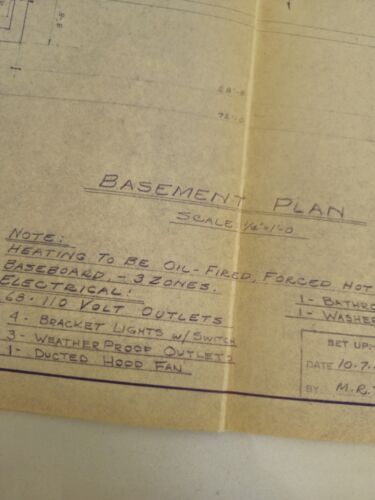 BASEMENT PLAN
SCALE: 1/2"=1'-0
NOTE:
HEATING TO BE OIL-FIRED, FORCED HOT
BASEBOARD - 3 ZONES.
ELECTRICAL:
68 - 110 VOLT OUTLETS
4 - BRACKET LIGHTS W/ SWITCH
3 - WEATHERPROOF OUTLETS
1 - DUCTED HOOD FAN
1 - BATHRO
1 - WASHER
SET UP:
DATE 10.7.
BY M.R.